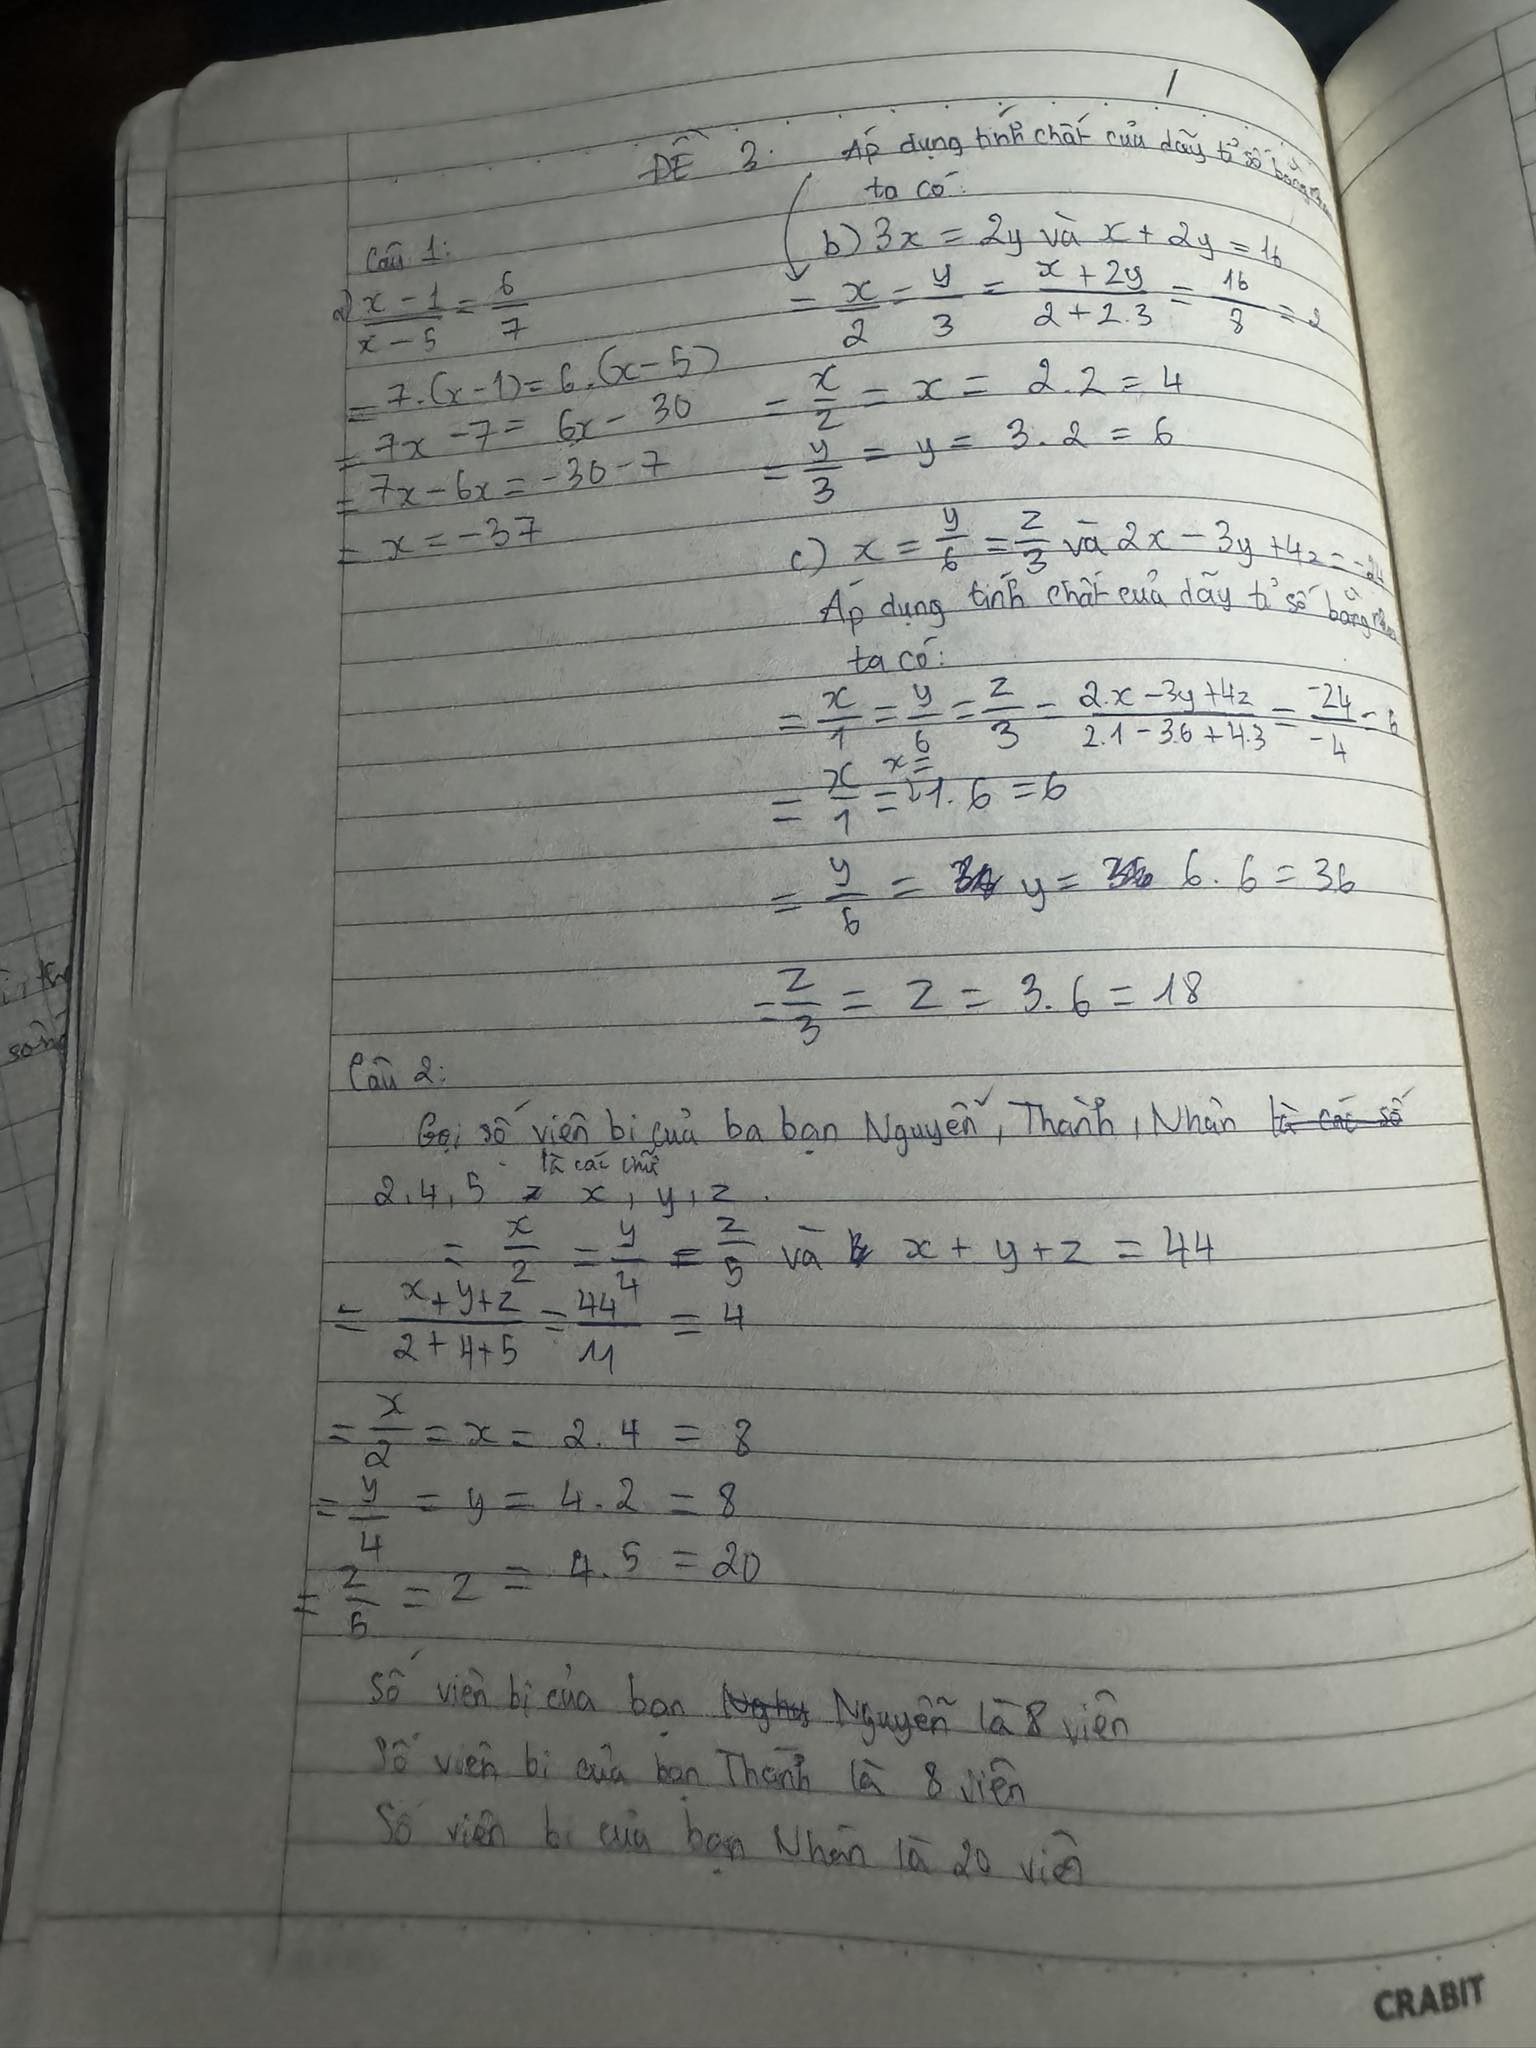 ĐỀ 3:
Câu 1:
a) x - 1 / x - 5 = 6 / 7
= 7.(x-1) = 6.(x-5)
= 7x - 7 = 6x - 30
= 7x - 6x = -30 - 7
= x = -37
Áp dụng tính chất của dãy tỉ số bằng nhau
ta có:
b) 3x = 2y và x + 2y = 16
= x / 2 = y / 3 = x + 2y / 2 + 2.3 = 16 / 8 = 2
= x / 2 = x = 2.2 = 4
= y / 3 = y = 3.2 = 6
c) x = y / 6 = z / 3 và 2x - 3y + 4z = -24
Áp dụng tính chất của dãy tỉ số bằng nhau
ta có:
= x / 1 = y / 6 = z / 3 = 2.x - 3y + 4z / 2.1 - 3.6 + 4.3 = -24 / -4 = 6
x =
= x / 1 = 1.6 = 6
= y / 6 = y = 6.6 = 36
= z / 3 = z = 3.6 = 18
Câu 2:
Gọi số viên bi của ba bạn Nguyễn, Thành, Nhân là các số
là các chữ
2,4,5 x, y, z.
= x / 2 = y / 4 = z / 5 và x + y + z = 44
= x+y+z / 2+4+5 = 44 4 / 11 = 4
= x / 2 = x = 2.4 = 8
= y / 4 = y = 4.2 = 8
= z / 5 = z = 4.5 = 20
Số viên bi của bạn Nguyễn là 8 viên
Số viên bi của bạn Thành là 8 viên
Số viên bi của bạn Nhân là 20 viên
CRABIT